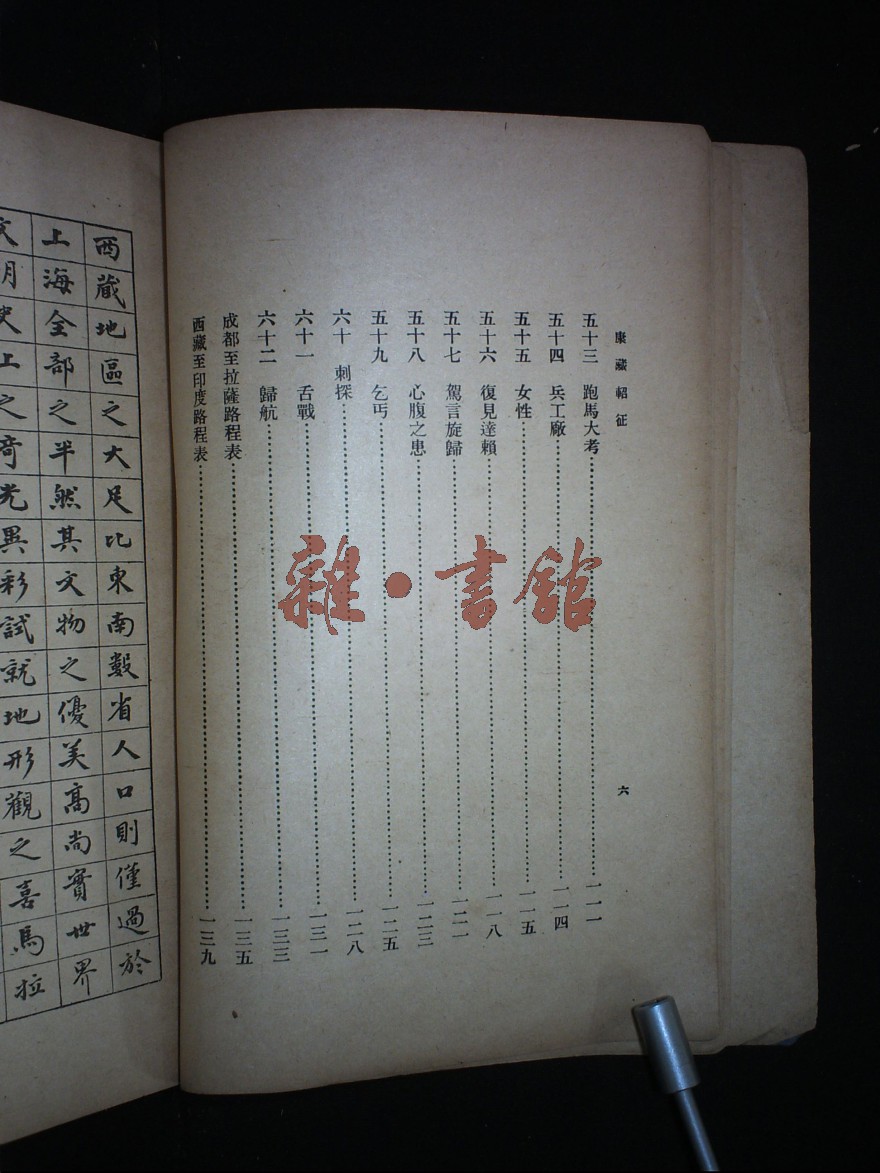 康藏軺征
六
五十三 跑馬大考⋯⋯一一一
五十四 兵工廠⋯⋯一一四
五十五 女性⋯⋯一一五
五十六 復見達賴⋯⋯一一八
五十七 駕言旋歸⋯⋯一二一
五十八 心腹之患⋯⋯一二三
五十九 乞丐⋯⋯一二五
六十 刺探⋯⋯一二八
六十一 舌戰⋯⋯一三一
六十二 歸航⋯⋯一三三
成都至拉薩路程表⋯⋯一三五
西藏至印度路程表⋯⋯一三九
雜·書館
西藏地區之大足比東南數省人口則僅過於
上海全部之半然其文物之優美高尚實世界
文明史上之奇光異彩試就地形觀之喜馬拉